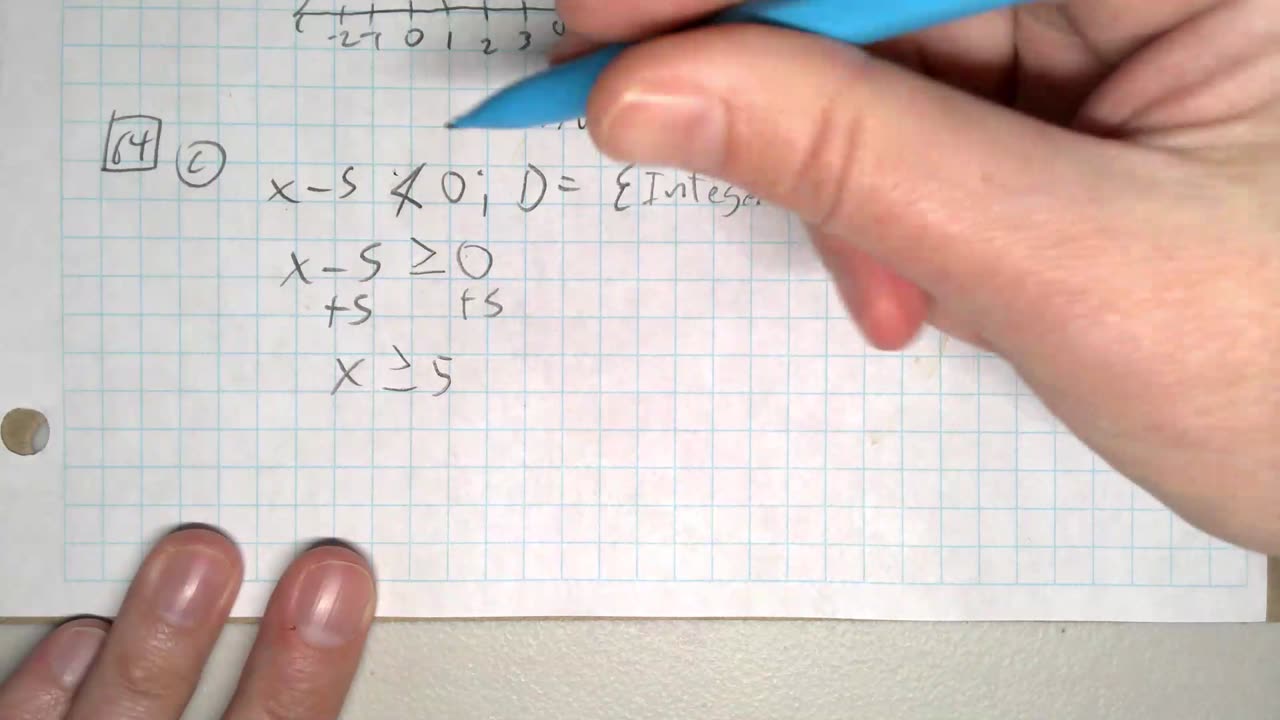 -2 -1 0 1 2 3
64 c x - 5 ≮ 0; D = {Intege
x - 5 ≥ 0
+5 +5
x ≥ 5